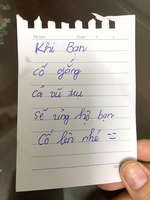 Khi Bạn
cố gắng
Cả vũ trụ
Sẽ ủng hộ bạn
Cố lên nhé